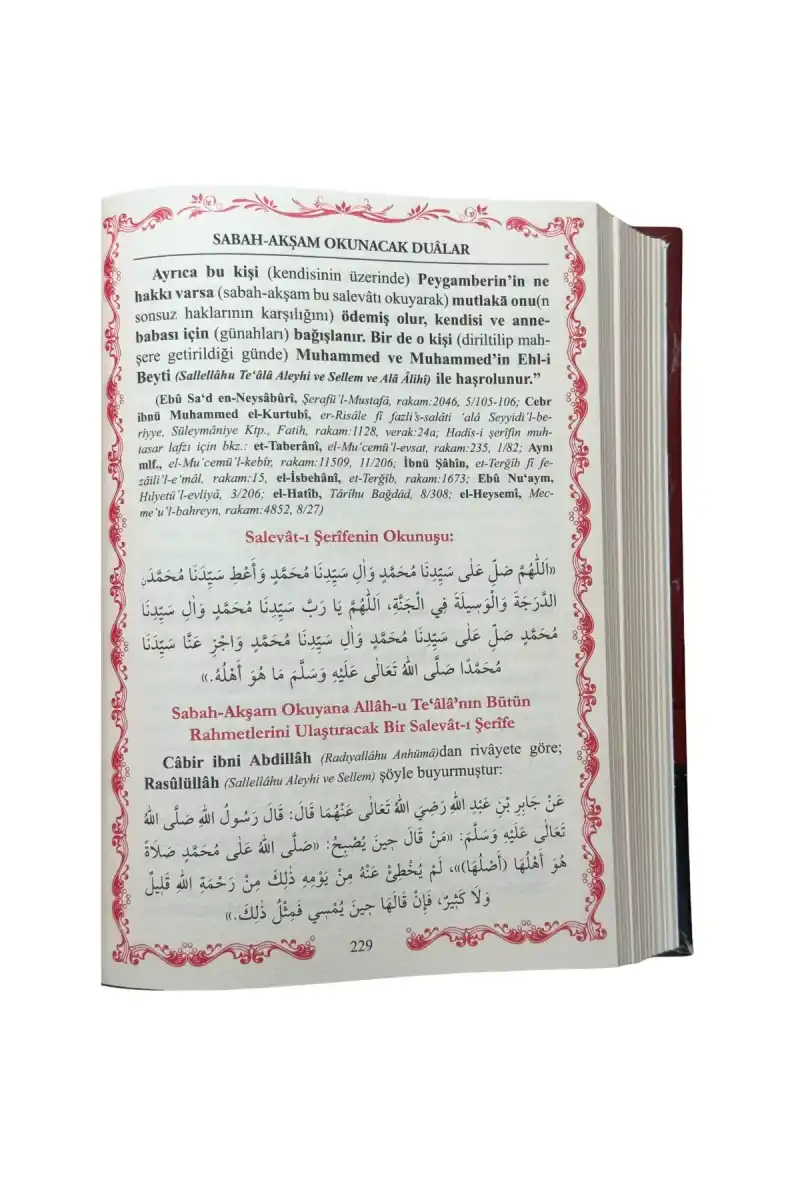 SABAH-AKŞAM OKUNACAK DUÂLAR
Ayrıca bu kişi (kendisinin üzerinde) Peygamberin'in ne
hakkı varsa (sabah-akşam bu salevâtı okuyarak) mutlakā onu(n
sonsuz haklarının karşılığını) ödemiş olur, kendisi ve anne-
babası için (günahları) bağışlanır. Bir de o kişi (diriltilip mah-
şere getirildiği günde) Muhammed ve Muhammed'in Ehl-i
Beyti (Sallellâhu Te‘âlâ Aleyhi ve Sellem ve Alâ Âlihî) ile haşrolunur."
(Ebû Sa‘d en-Neysâbûrî, Şerafü'l-Mustafâ, rakam:2046, 5/105-106; Cebr
ibnü Muhammed el-Kurtubî, er-Risâle fî fazli's-salâti ‘alâ Seyyidi'l-be-
riyye, Süleymâniye Ktp., Fatih, rakam:1128, verak:24a; Hadîs-i şerîfin muh-
tasar lafzı için bkz.: et-Taberânî, el-Mu‘cemü'l-evsat, rakam:235, 1/82; Aynı
mlf., el-Mu‘cemü'l-kebîr, rakam:11509, 11/206; İbnü Şâhîn, et-Terğîb fî fe-
zâili'l-e‘mâl, rakam:15, el-İsbehânî, et-Terğîb, rakam:1673; Ebû Nu‘aym,
Hılyetü'l-evliyâ, 3/206; el-Hatîb, Târîhu Bağdâd, 8/308; el-Heysemî, Mec-
me‘u'l-bahreyn, rakam:4852, 8/27)
Salevât-ı Şerîfenin Okunuşu:
«اَللّٰهُمَّ صَلِّ عَلٰى سَيِّدِنَا مُحَمَّدٍ وَاٰلِ سَيِّدِنَا مُحَمَّدٍ وَأَعْطِ سَيِّدَنَا مُحَمَّدَنِ
الدَّرَجَةَ وَالْوَسِيلَةَ فِي الْجَنَّةِ، اَللّٰهُمَّ يَا رَبَّ سَيِّدِنَا مُحَمَّدٍ وَاٰلِ سَيِّدِنَا
مُحَمَّدٍ صَلِّ عَلٰى سَيِّدِنَا مُحَمَّدٍ وَاٰلِ سَيِّدِنَا مُحَمَّدٍ وَاجْزِ عَنَّا سَيِّدَنَا
مُحَمَّدًا صَلَّى اللهُ تَعَالٰى عَلَيْهِ وَسَلَّمَ مَا هُوَ أَهْلُهُ.»
Sabah-Akşam Okuyana Allâh-u Te‘âlâ'nın Bütün
Rahmetlerini Ulaştıracak Bir Salevât-ı Şerîfe
Câbir ibni Abdillâh (Radıyallâhu Anhümâ)dan rivâyete göre;
Rasûlüllâh (Sallellâhu Aleyhi ve Sellem) şöyle buyurmuştur:
عَنْ جَابِرِ بْنِ عَبْدِ اللهِ رَضِيَ اللهُ تَعَالٰى عَنْهُمَا قَالَ: قَالَ رَسُولُ اللهِ صَلَّى اللهُ
تَعَالٰى عَلَيْهِ وَسَلَّمَ: «مَنْ قَالَ حِينَ يُصْبِحُ: «صَلَّى اللهُ عَلٰى مُحَمَّدٍ صَلَاةً
هُوَ أَهْلُهَا (أَصْلُهَا)»، لَمْ يُخْطِئْ عَنْهُ مِنْ يَوْمِهِ ذٰلِكَ مِنْ رَحْمَةِ اللهِ قَلِيلٌ
وَلَا كَثِيرٌ، فَإِنْ قَالَهَا حِينَ يُمْسِي فَمِثْلُ ذٰلِكَ.»
229